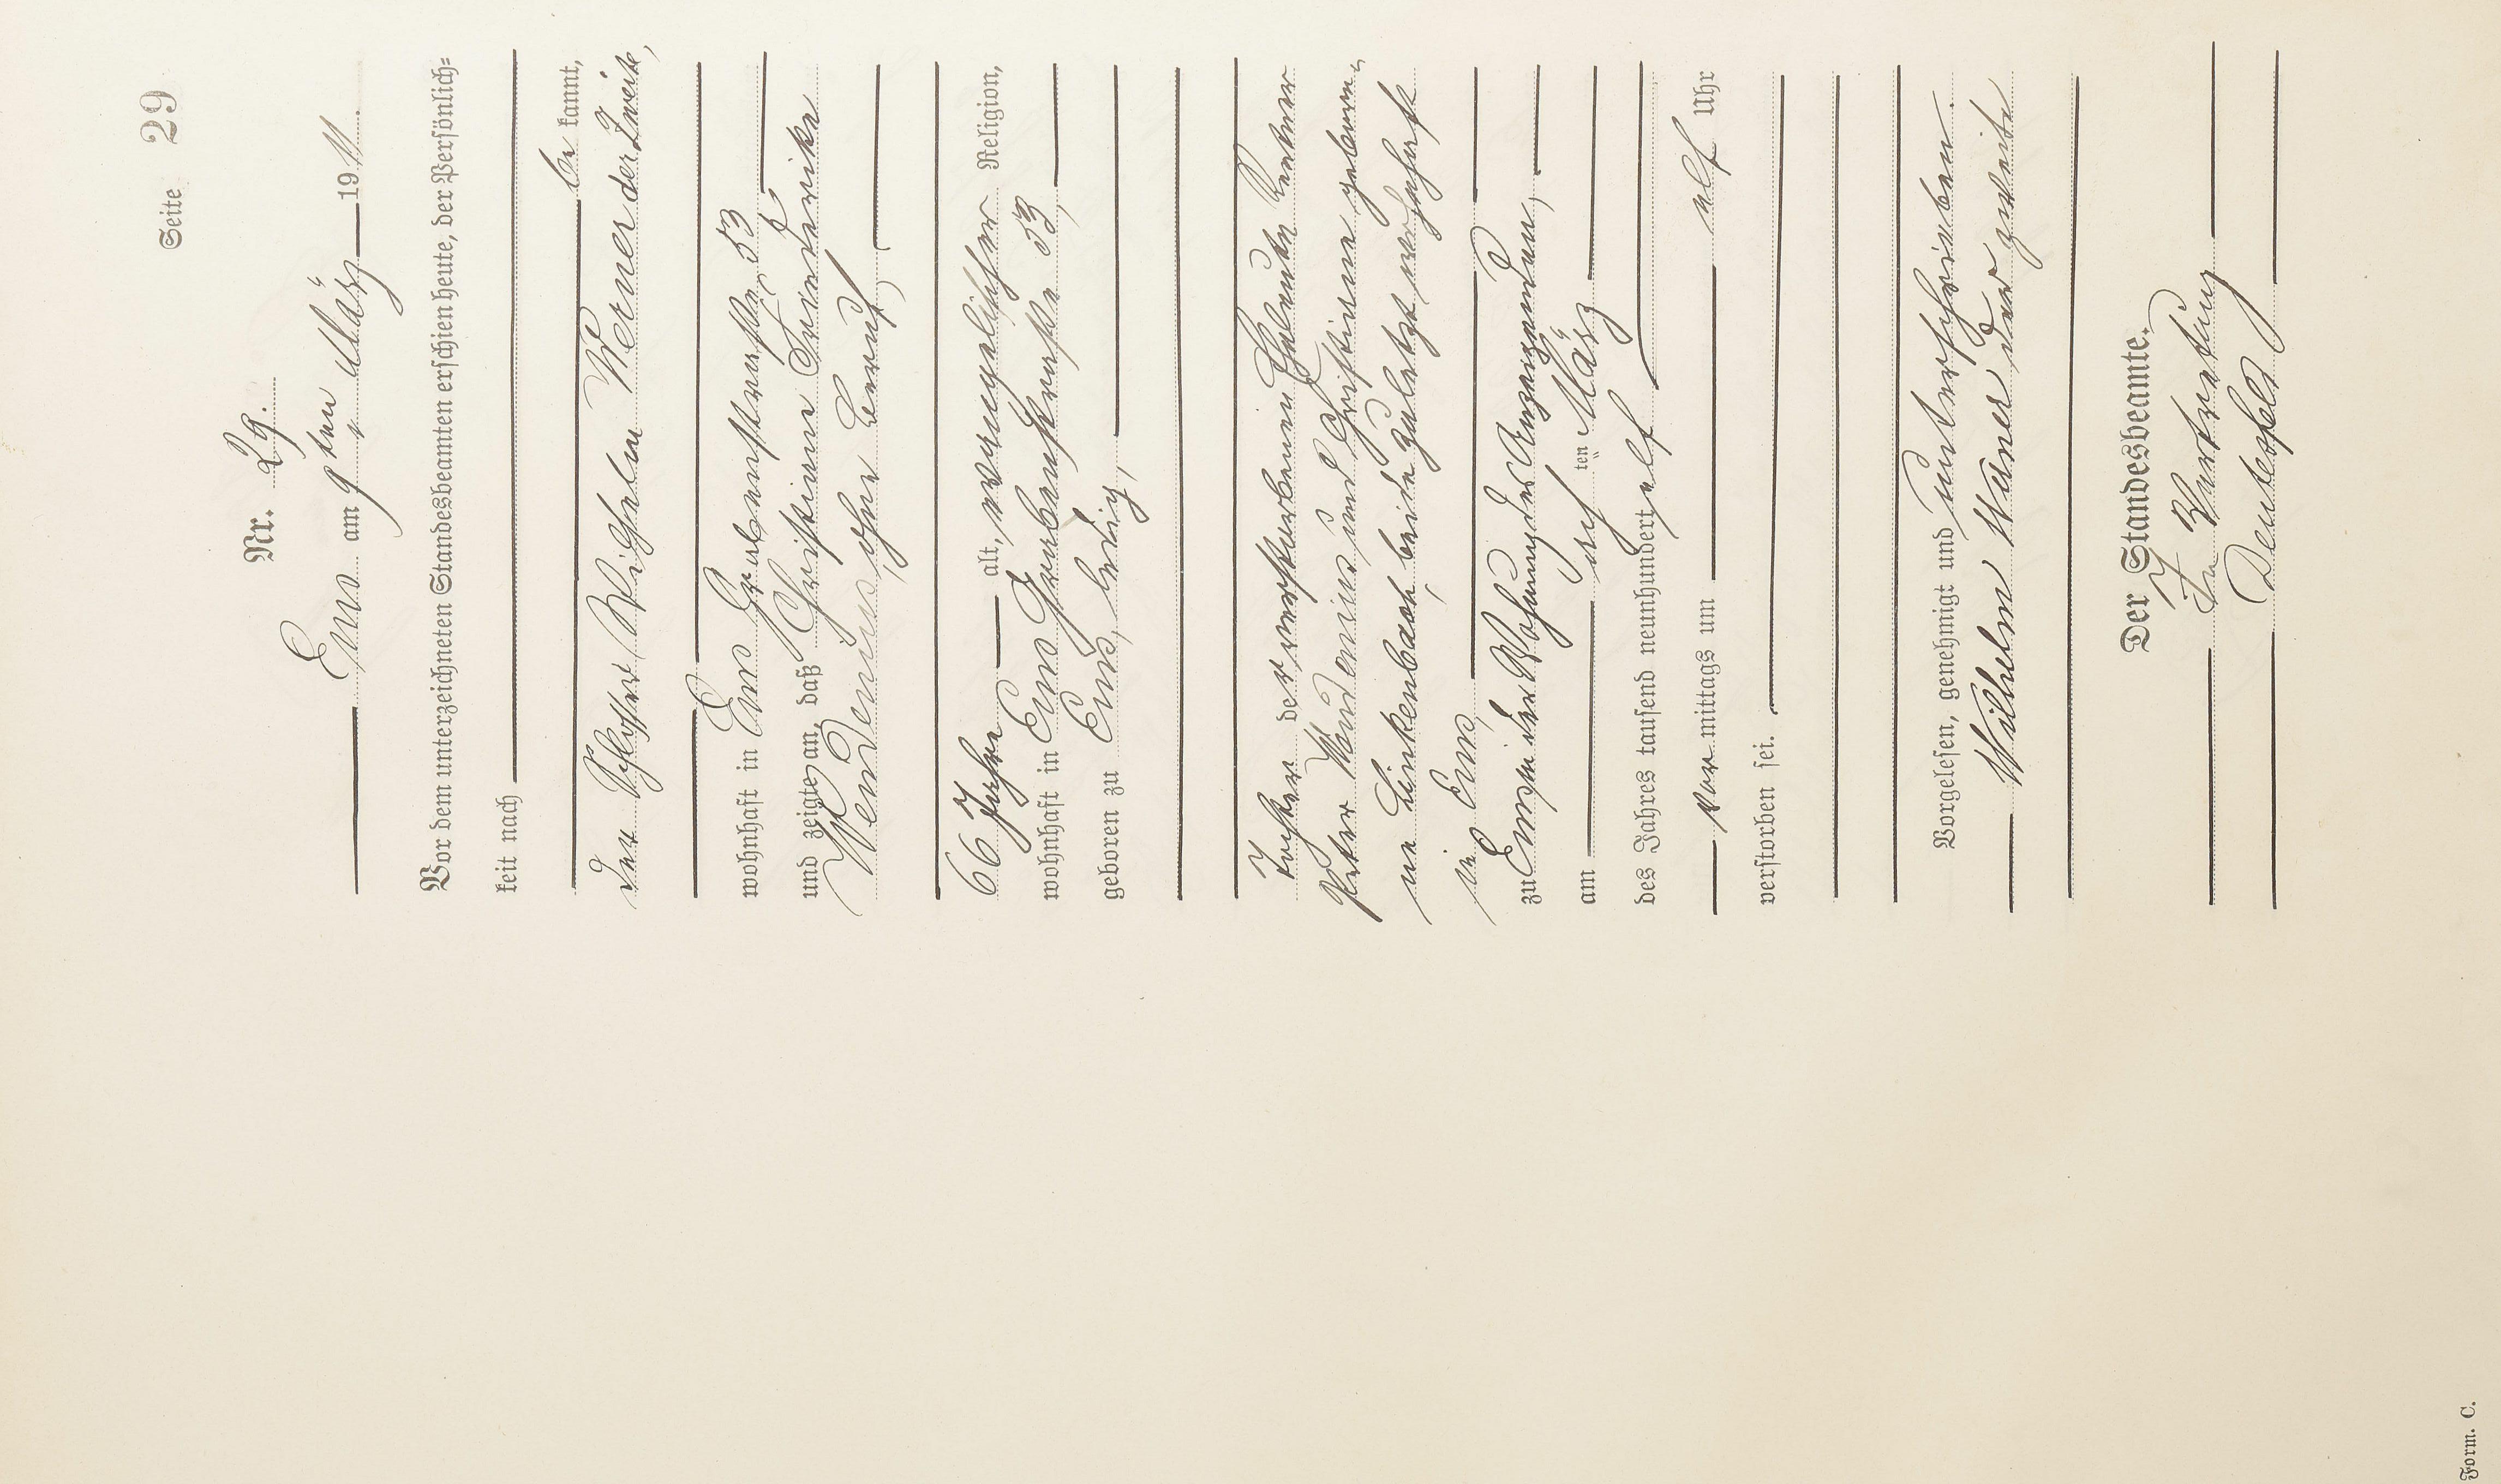 Seite 29
Nr. 29.
Ems am 9ten März 1911.
Vor dem unterzeichneten Standesbeamten erschien heute, der Persönlich-
keit nach
be kannt,
der Schlosser Wilhelm Werner der Zweite,
wohnhaft in Ems Grabenstraße 53
und zeigte an, daß Christiane Frederike
Wendenius, ohne Beruf,
66 Jahre alt, evangelischer Religion,
wohnhaft in Ems Grabenstraße 53,
geboren zu Ems, ledig,
Tochter der verstorbenen Eheleute Rentner
Peter Wendenius und Christiane gebore-
ne Linkenbach, beide zuletzt wohnhaft
in Ems,
zu Ems in der Wohnung des Anzeigenden,
am acht ten März
des Jahres tausend neunhundert elf
vor mittags um elf Uhr
verstorben sei.
Vorgelesen, genehmigt und unterschrieben.
Wilhelm Werner der zweite
Der Standesbeamte.
In Vertretung
Form. C.